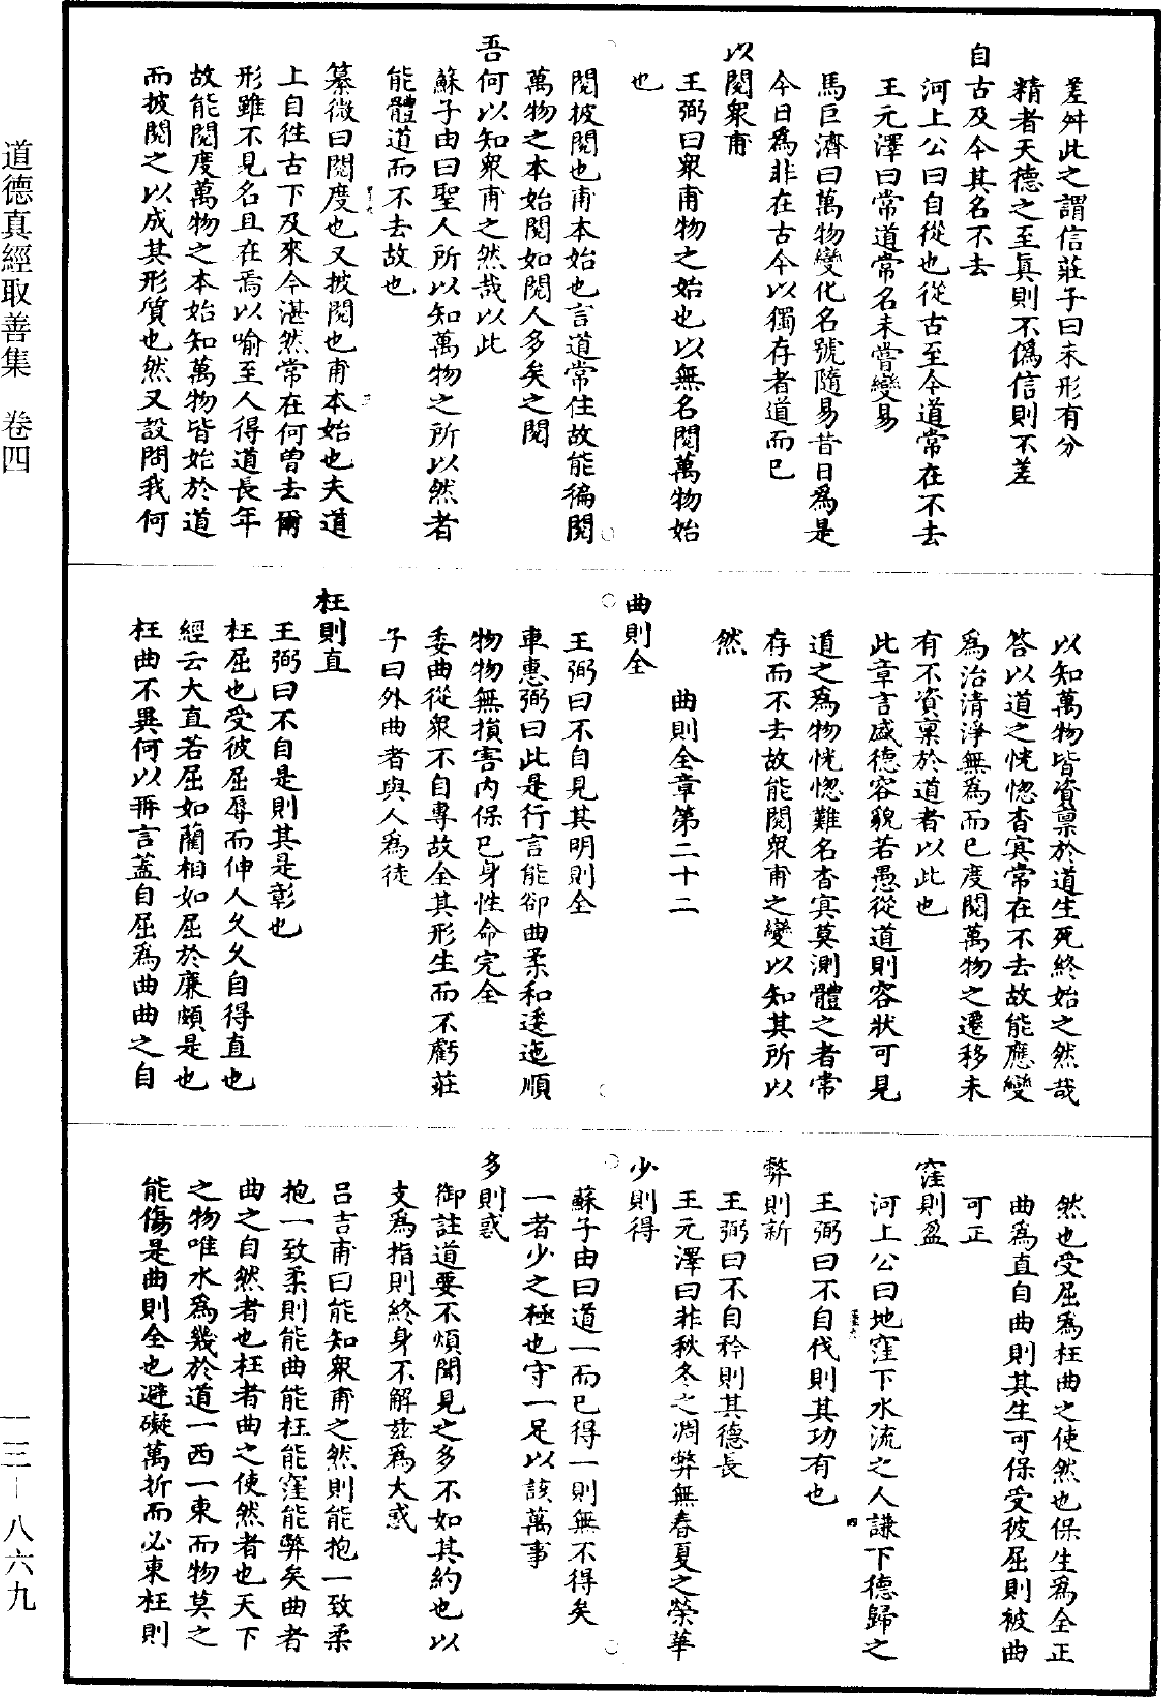 差舛此之謂信莊子曰未形有分
精者天德之至眞則不僞信則不差
自古及今其名不去
河上公曰自從也從古至今道常在不去
王元澤曰常道常名未嘗變易
馬巨濟曰萬物變化名號隨易昔日爲是
今日爲非在古今以獨存者道而已
以閱衆甫
王弼曰衆甫物之始也以無名閱萬物始
也
閱披閱也甫本始也言道常住故能徧閱
萬物之本始閱如閱人多矣之閱
吾何以知衆甫之然哉以此
蘇子由曰聖人所以知萬物之所以然者
能體道而不去故也
纂微曰閱度也又披閱也甫本始也夫道
上自往古下及來今湛然常在何曾去爾
形雖不見名且在焉以喻至人得道長年
故能閱度萬物之本始知萬物皆始於道
而披閱之以成其形質也然又設問我何
以知萬物皆資稟於道生死終始之然哉
答以道之恍惚杳冥常在不去故能應變
爲治清淨無爲而已度閱萬物之遷移未
有不資稟於道者以此也
此章言盛德容貌若愚從道則容狀可見
道之爲物恍惚難名杳冥莫測體之者常
存而不去故能閱衆甫之變以知其所以
然
曲則全章第二十二
曲則全
王弼曰不自見其明則全
車惠弼曰此是行言能卻曲柔和逶迤順
物物無損害內保已身性命完全
委曲從衆不自專故全其形生而不虧莊
子曰外曲者與人爲徒
枉則直
王弼曰不自是則其是彰也
枉屈也受彼屈辱而伸人久久自得直也
經云大直若屈如藺相如屈於廉頗是也
枉曲不異何以再言蓋自屈爲曲曲之自
然也受屈爲枉曲之使然也保生爲全正
曲爲直自曲則其生可保受彼屈則被曲
可正
窪則盈
河上公曰地窪下水流之人謙下德歸之
王弼曰不自伐則其功有也
弊則新
王弼曰不自矜則其德長
王元澤曰非秋冬之凋弊無春夏之榮華
少則得
蘇子由曰道一而已得一則無不得矣
一者少之極也守一足以該萬事
多則惑
御註道要不煩聞見之多不如其約也以
支爲指則終身不解茲爲大惑
呂吉甫曰能知衆甫之然則能抱一致柔
抱一致柔則能曲能枉能窪能弊矣曲者
曲之自然者也枉者曲之使然者也天下
之物唯水爲幾於道一西一東而物莫之
能傷是曲則全也避礙萬折而必東枉則
道德真經取善集　卷四
一三－八六九